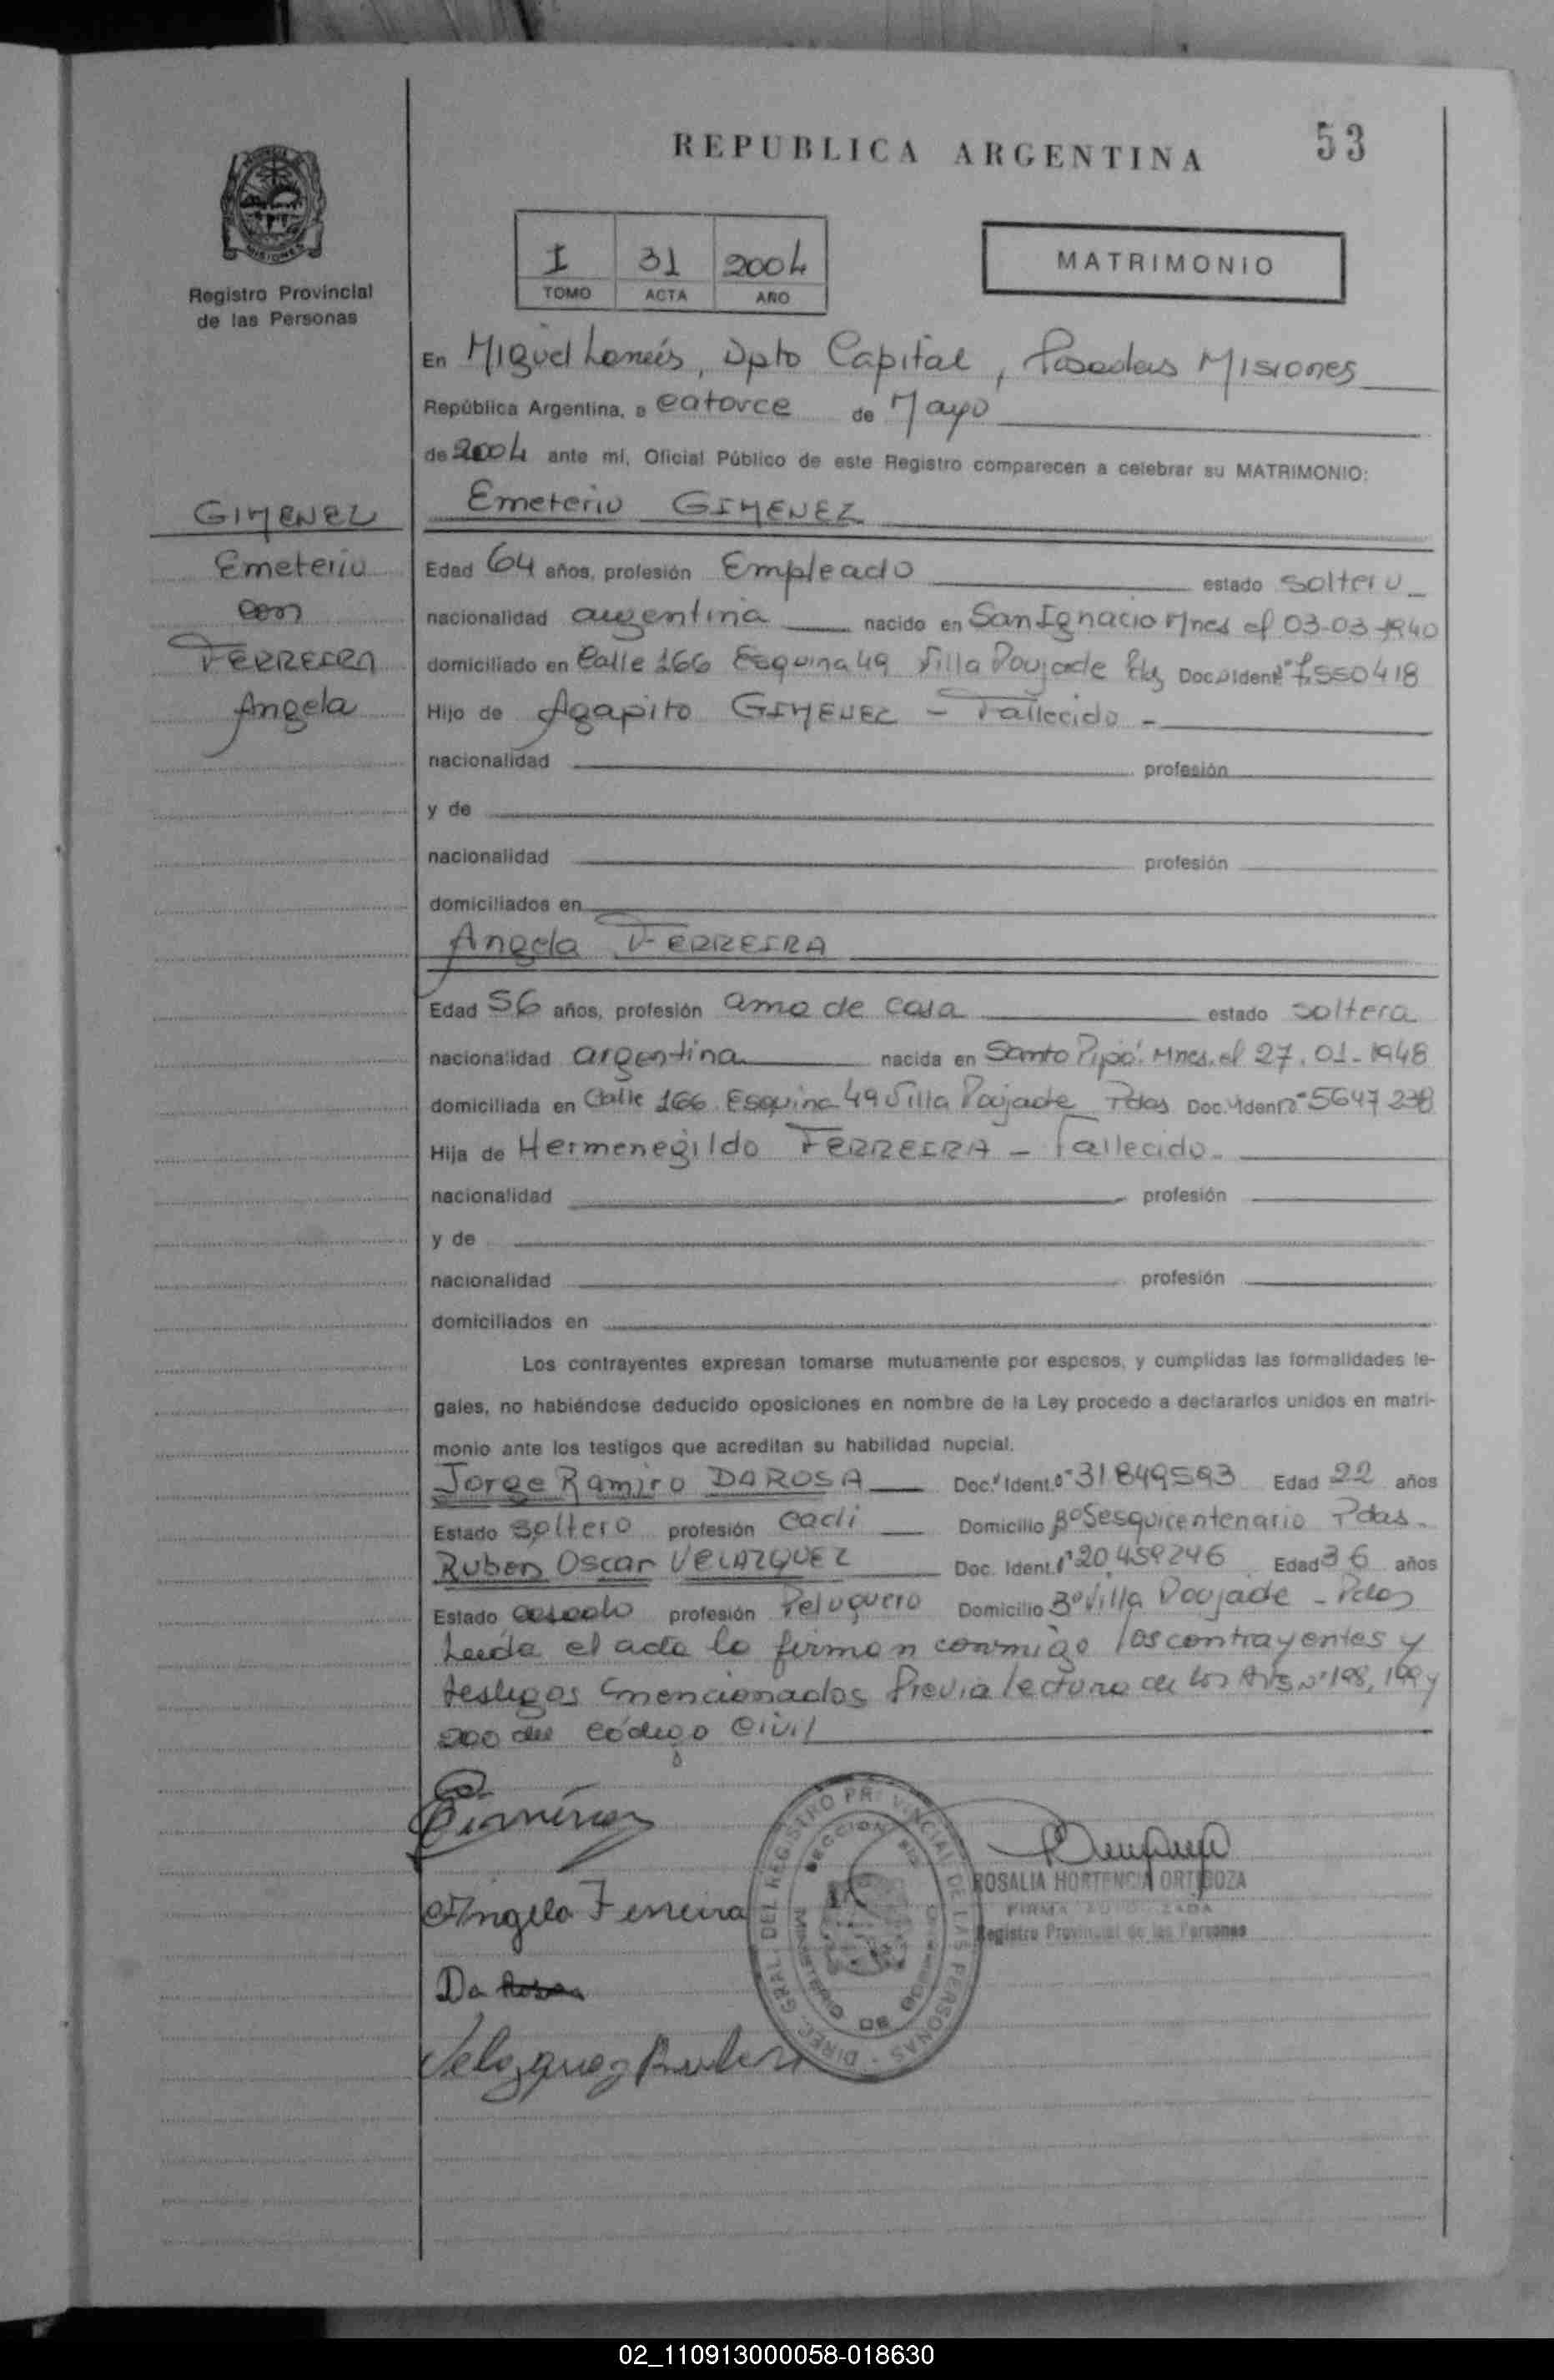 REPUBLICA ARGENTINA
53
PROVINCIA DE
MISIONES
Registro Provincial
de las Personas
I 31 2004
TOMO ACTA AÑO
MATRIMONIO
En Miguel Lanús, Dpto Capital, Posadas Misiones
República Argentina, a catorce de Mayo
de 2004 ante mí, Oficial Público de este Registro comparecen a celebrar su MATRIMONIO:
GIMENEZ
Emeterio
con
FERREIRA
Angela
Emeterio GIMENEZ
Edad 64 años, profesión Empleado estado soltero
nacionalidad argentina nacido en San Ignacio Mnes el 03-03-1940
domiciliado en Calle 166 Esquina 49 Villa Poujade Pdas Doc. Ident. Nº 7.550418
Hijo de Agapito GIMENEZ - Fallecido -
nacionalidad profesión
y de
nacionalidad profesión
domiciliados en
Angela FERREIRA
Edad 56 años, profesión ama de casa estado soltera
nacionalidad argentina nacida en Santo Pipó. Mnes. el 27.01-1948
domiciliada en Calle 166 Esquina 49 Villa Poujade Pdas Doc. Ident. Nº 5647238
Hija de Hermenegildo FERREIRA - Fallecido.
nacionalidad profesión
y de
nacionalidad profesión
domiciliados en
Los contrayentes expresan tomarse mutuamente por esposos, y cumplidas las formalidades le-
gales, no habiéndose deducido oposiciones en nombre de la Ley procedo a declararlos unidos en matri-
monio ante los testigos que acreditan su habilidad nupcial.
Jorge Ramiro DA ROSA Doc. Ident. Nº 31849593 Edad 22 años
Estado soltero profesión Domicilio Bº Sesquicentenario Pdas.
Ruben Oscar VELAZQUEZ Doc. Ident. Nº 20.459246 Edad 36 años
Estado casado profesión Peluquero Domicilio Bº Villa Poujade - Pdas
Leida el acta la firman conmigo los contrayentes y
testigos mencionados Previa lectura de los Arts Nº 198, 199 y
200 del código Civil
Angela Ferreira
Da Rosa
Velazquez Ruben
DIREC. GRAL. DEL REGISTRO PROVINCIAL DE LAS PERSONAS
MINISTERIO DE GOBIERNO
ROSALIA HORTENCIA ORTIGOZA
FIRMA AUTORIZADA
Registro Provincial de las Personas
02_110913000058-018630